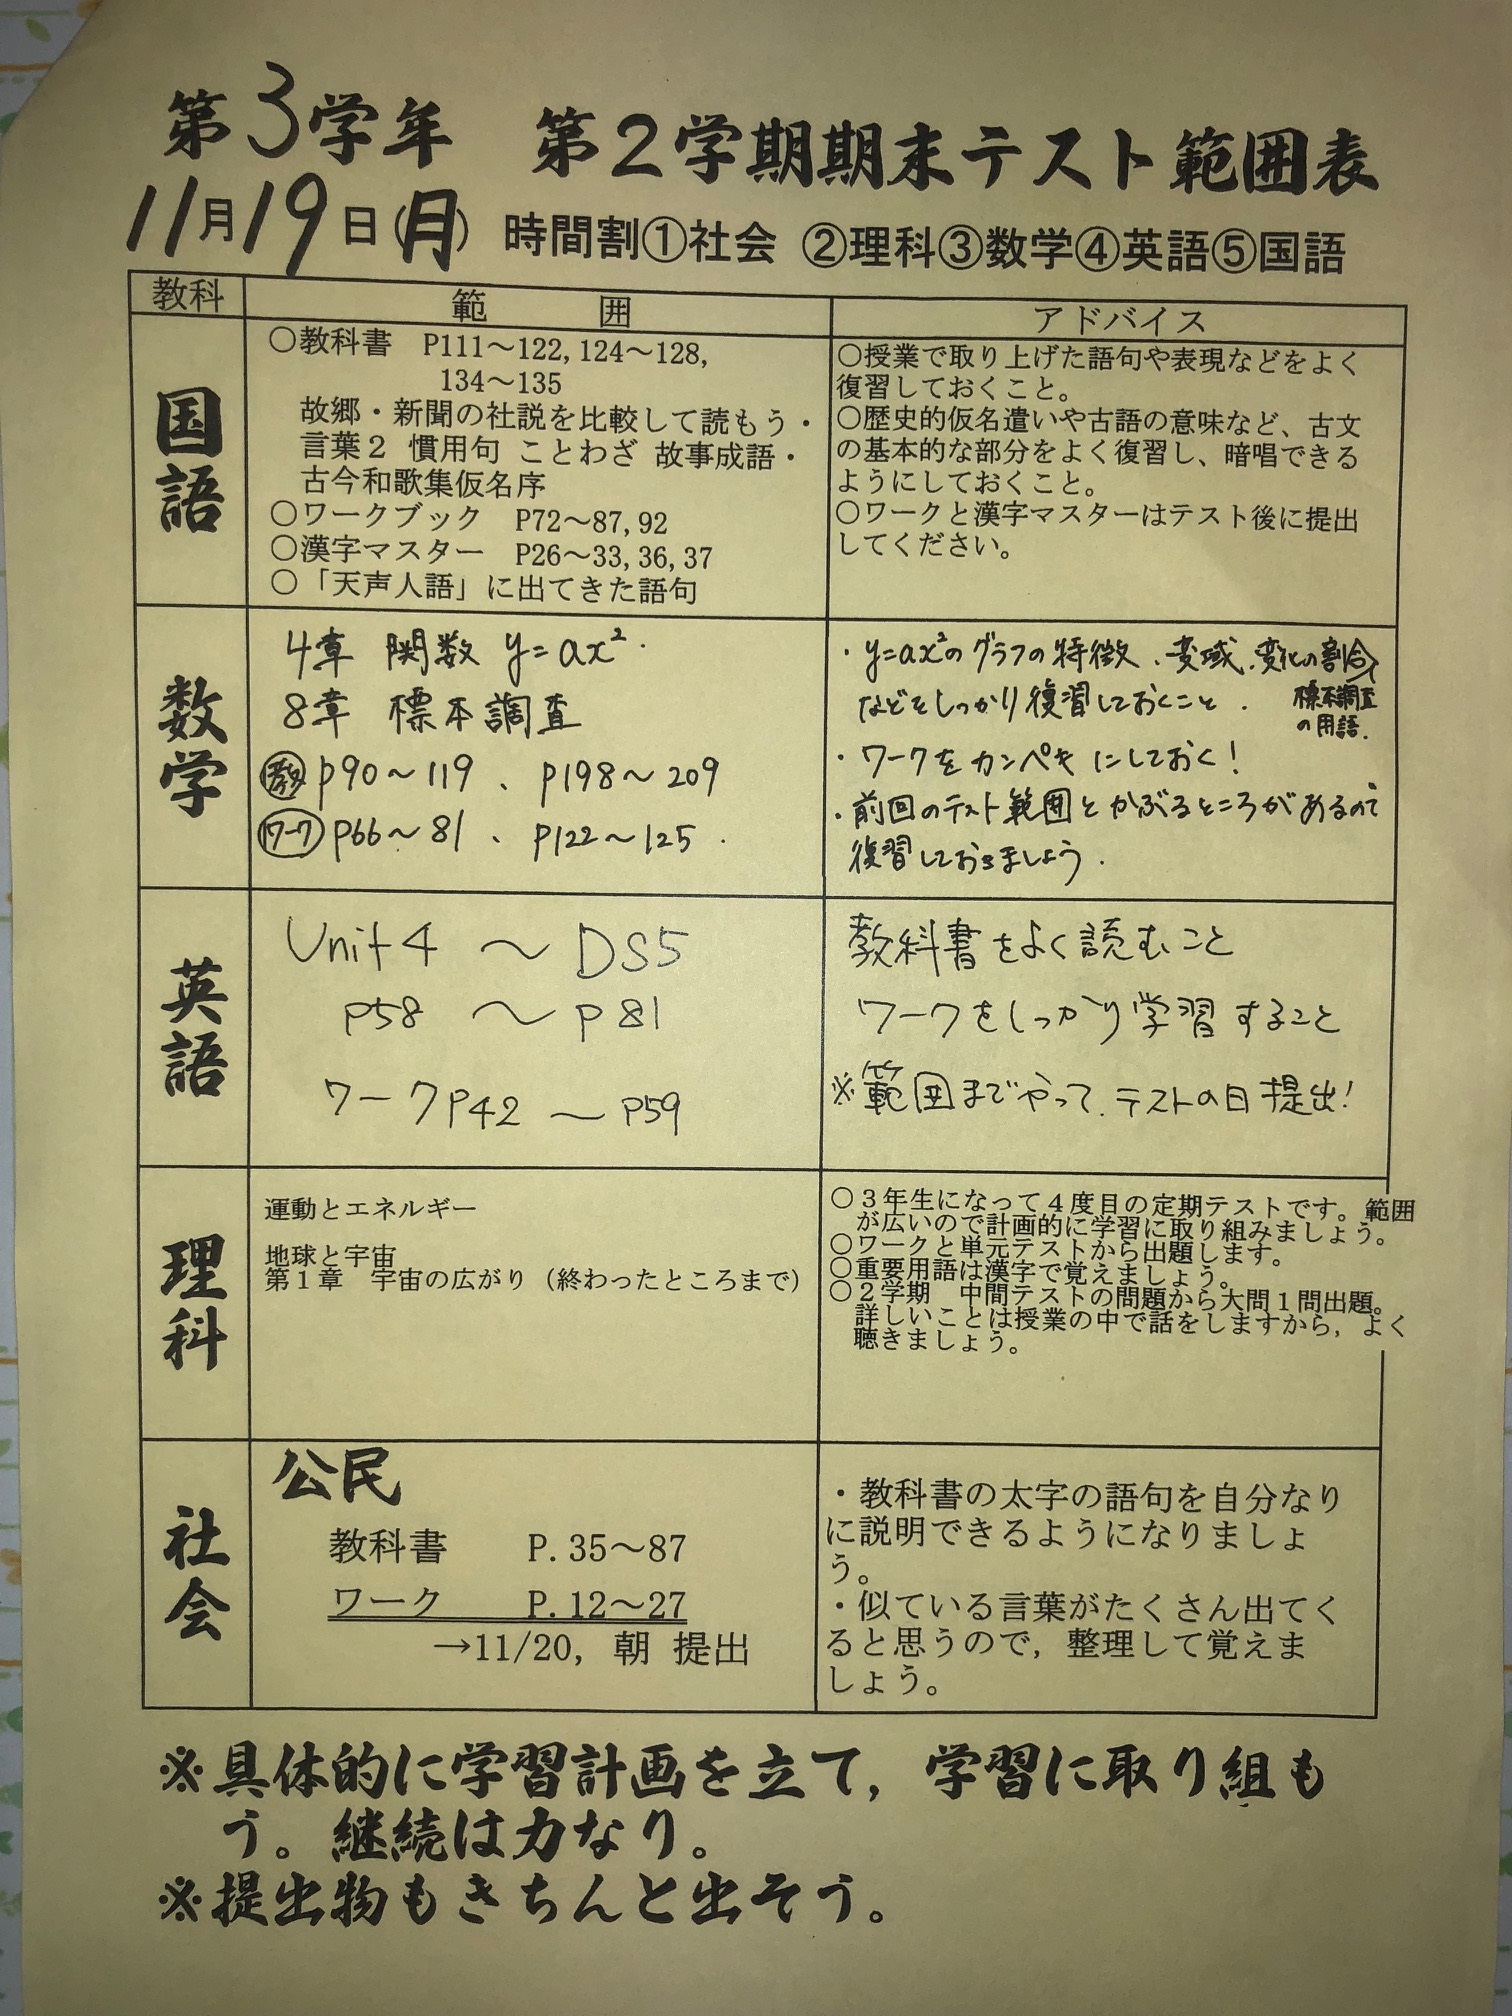 第3学年 第2学期期末テスト範囲表
11月19日(月) 時間割①社会 ②理科③数学④英語⑤国語
教科
範 囲
アドバイス
国語
○教科書 P111～122,124～128,
134～135
故郷・新聞の社説を比較して読もう・
言葉2 慣用句 ことわざ 故事成語・
古今和歌集仮名序
○ワークブック P72～87,92
○漢字マスター P26～33,36,37
○「天声人語」に出てきた語句
○授業で取り上げた語句や表現などをよく
復習しておくこと。
○歴史的仮名遣いや古語の意味など、古文
の基本的な部分をよく復習し、暗唱できる
ようにしておくこと。
○ワークと漢字マスターはテスト後に提出
してください。
数学
4章 関数 y=ax².
8章 標本調査
教 p90～119、p198～209
ワーク p66～81、p122～125.
・y=ax²のグラフの特徴、変域、変化の割合、
標本調査
の用語.
などをしっかり復習しておくこと.
・ワークをカンペキにしておく!
・前回のテスト範囲とかぶるところがあるので
復習しておきましょう.
英語
Unit4 ～ DS5
p58 ～ p81
ワークp42 ～ p59
教科書をよく読むこと
ワークをしっかり学習すること
※範囲までやって、テストの日提出!
理科
運動とエネルギー
地球と宇宙
第1章 宇宙の広がり(終わったところまで)
○3年生になって4度目の定期テストです。範囲
が広いので計画的に学習に取り組みましょう。
○ワークと単元テストから出題します。
○重要用語は漢字で覚えましょう。
○2学期 中間テストの問題から大問1問出題。
詳しいことは授業の中で話をしますから,よく
聴きましょう。
社会
公民
教科書 P.35～87
ワーク P.12～27
→11/20, 朝 提出
・教科書の太字の語句を自分なり
に説明できるようになりましょ
う。
・似ている言葉がたくさん出てく
ると思うので,整理して覚えま
しょう。
※具体的に学習計画を立て,学習に取り組も
う。継続は力なり。
※提出物もきちんと出そう。